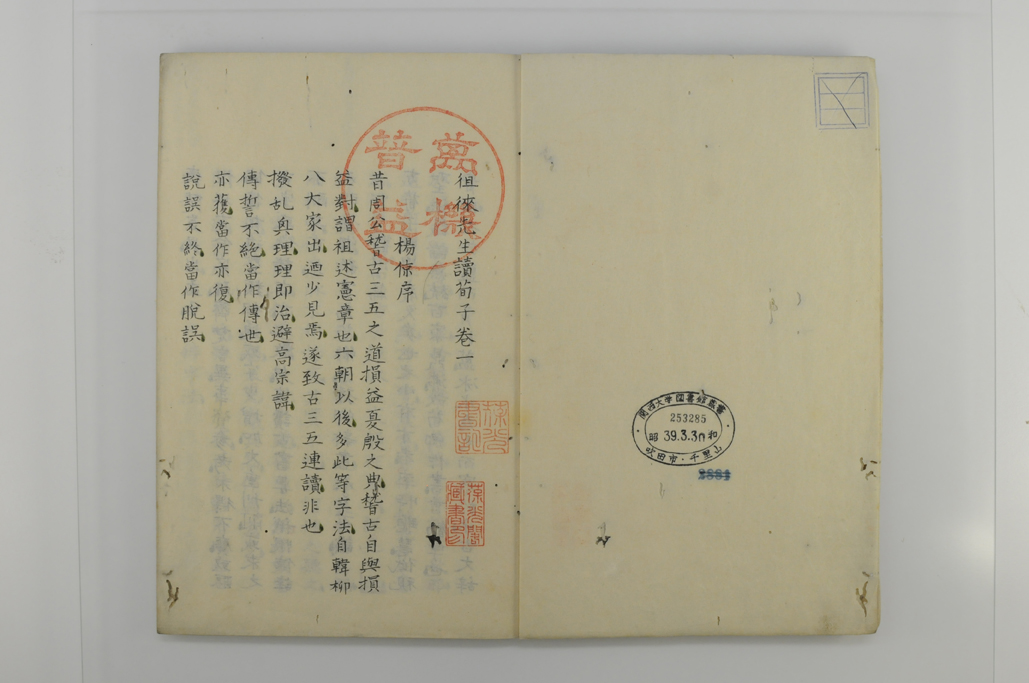 關西大学図書館蔵書
253285
昭和
39.3.30
吹田市・千里山
萬機
普益
徂徠先生讀荀子卷一
楊倞序
昔周公稽古三五之道損益夏殷之典稽古自與損
益對謂祖述憲章也六朝以後多此等字法自韓柳
八大家出迺少見焉遂致古三五連讀非也
撥乱興理理即治避高宗諱
傳誓不絶當作傳世
亦獲當作亦復
說誤不終當作脫誤